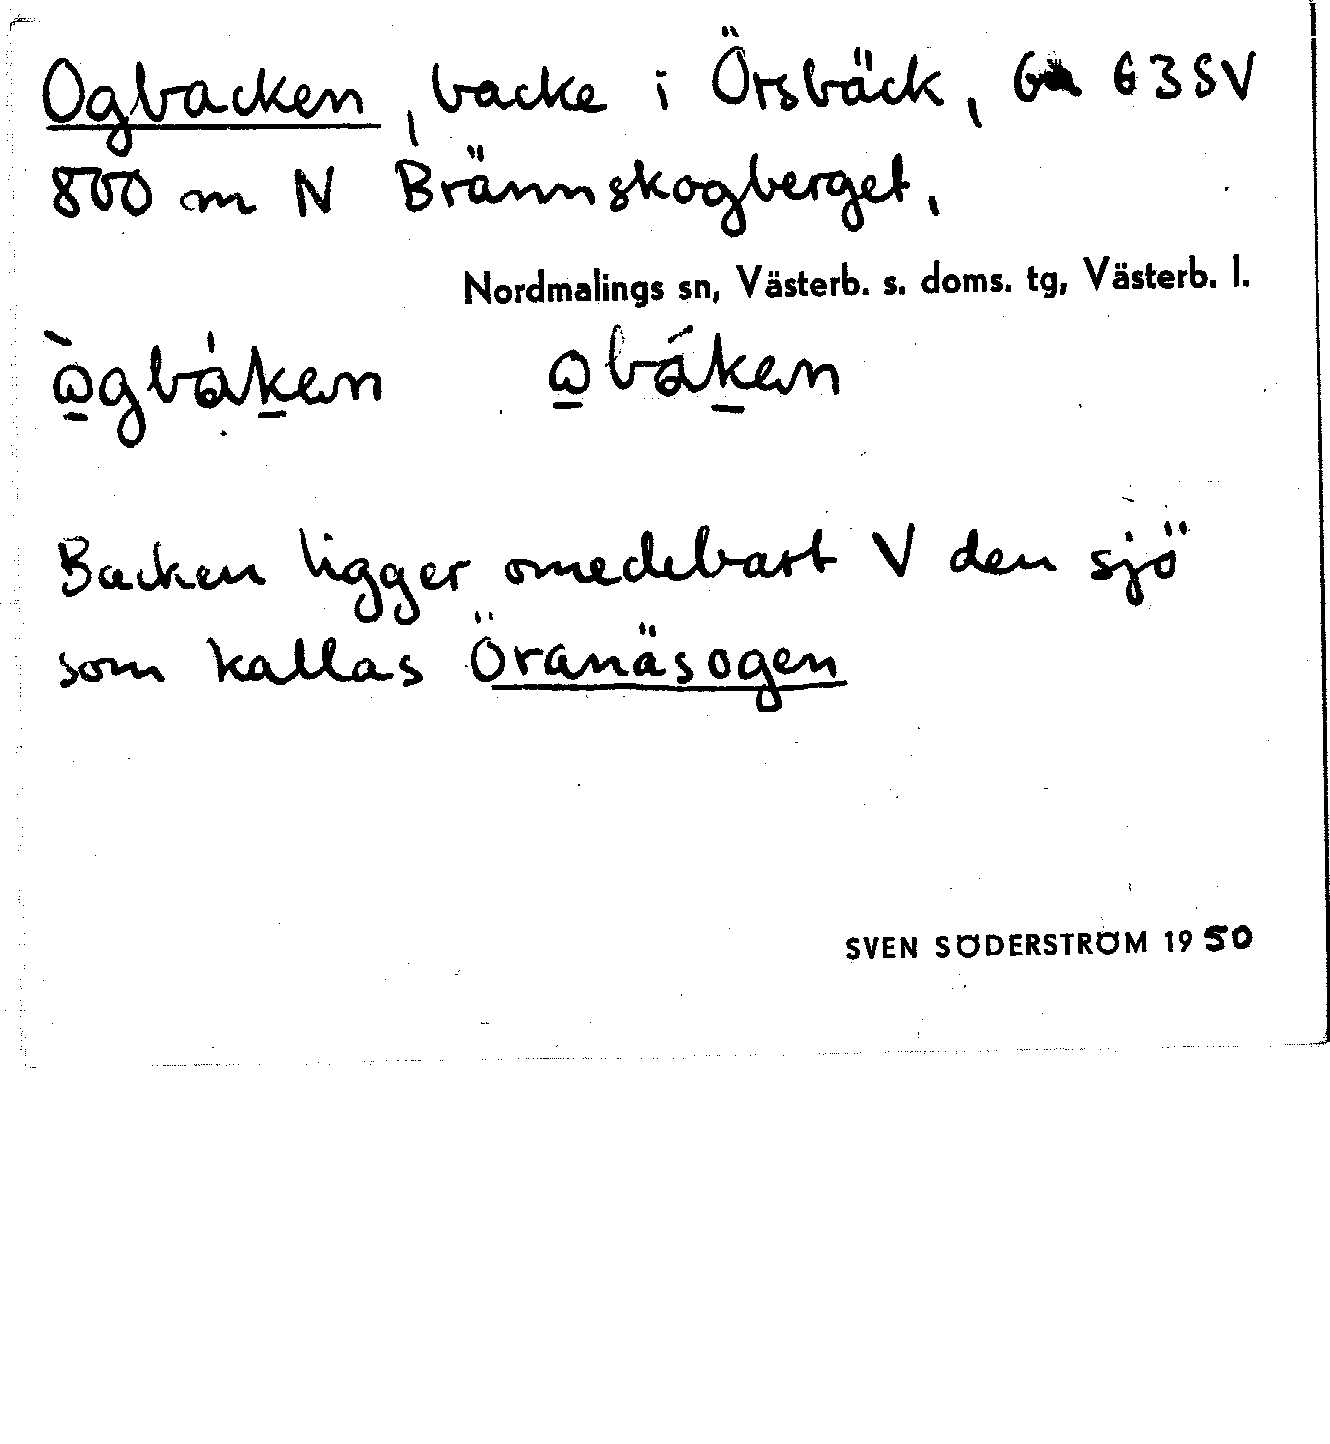 Ogbacken, backe i Örsbäck, 63 SV
800 m N Brännskogberget.
Nordmalings sn, Västerb. s. doms. tg, Västerb. l.
Backen ligger omedebart V den sjö
som kallas Öranäsogen
SVEN SÖDERSTRÖM 1950